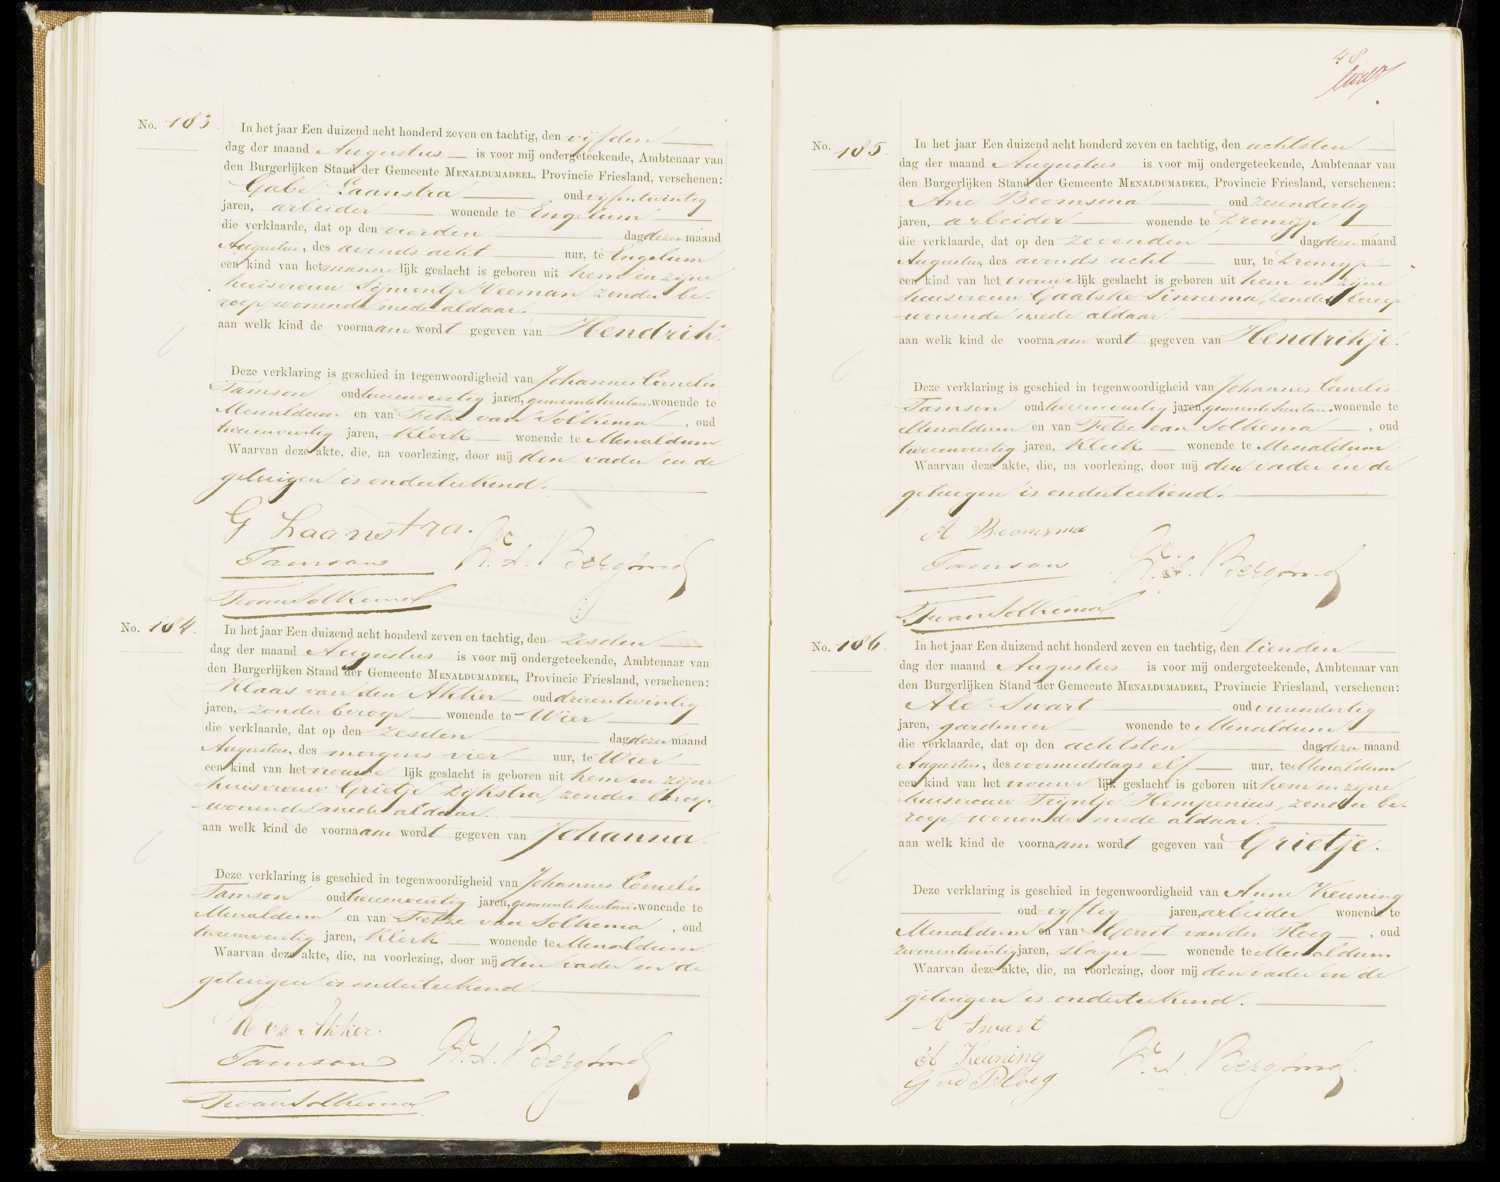 No. 183.
In het jaar Een duizend acht honderd zeven en tachtig, den vijfden
dag der maand Augustus is voor mij ondergeteekende, Ambtenaar van
den Burgerlijken Stand der Gemeente MENALDUMADEEL, Provincie Friesland, verschenen:
Gabe Laanstra oud vijfentwintig
jaren, arbeider wonende te Engelum
die verklaarde, dat op den vierden dag dezer maand
Augustus, des avonds acht uur, te Engelum
een kind van het mannelijk geslacht is geboren uit hem en zijne
huisvrouw Sijmentje Weeman, zonder be-
roep, wonende mede aldaar.
aan welk kind de voornaam wordt gegeven van Hendrik.
Deze verklaring is geschied in tegenwoordigheid van Johannes Cornelis
Tamson oud jaren, gemeente wonende te
Menaldum en van Fetze van Solkema, oud
jaren, Klerk wonende te Menaldum
Waarvan deze akte, die, na voorlezing, door mij den vader en de
getuigen is onderteekend.
G Laanstra.
Tamson
FvanSolkema
No. 184.
In het jaar Een duizend acht honderd zeven en tachtig, den zesden
dag der maand Augustus is voor mij ondergeteekende, Ambtenaar van
den Burgerlijken Stand der Gemeente MENALDUMADEEL, Provincie Friesland, verschenen:
Klaas van den Akker oud drieentwintig
jaren, zonder beroep wonende te Wier
die verklaarde, dat op den zesden dag dezer maand
Augustus, des morgens vier uur, te Wier
een kind van het vrouwelijk geslacht is geboren uit hem en zijne
huisvrouw Grietje Dijkstra, zonder beroep,
wonende mede aldaar.
aan welk kind de voornaam wordt gegeven van Johanna.
Deze verklaring is geschied in tegenwoordigheid van Johannes Cornelis
Tamson oud jaren, gemeente wonende te
Menaldum en van Fetze van Solkema, oud
jaren, Klerk wonende te Menaldum
Waarvan deze akte, die, na voorlezing, door mij den vader en de
getuigen is onderteekend.
Akker.
Tamson
FvanSolkema
48
No. 185.
In het jaar Een duizend acht honderd zeven en tachtig, den achtsten
dag der maand Augustus is voor mij ondergeteekende, Ambtenaar van
den Burgerlijken Stand der Gemeente MENALDUMADEEL, Provincie Friesland, verschenen:
Ane Boomsma oud
jaren, arbeider wonende te Dronrijp
die verklaarde, dat op den zevenden dag dezer maand
Augustus, des avonds acht uur, te Dronrijp
een kind van het vrouwelijk geslacht is geboren uit hem en zijne
huisvrouw Gaatske Sinnema, zonder beroep
wonende mede aldaar.
aan welk kind de voornaam wordt gegeven van Hendrikje.
Deze verklaring is geschied in tegenwoordigheid van Johannes Cornelis
Tamson oud jaren, gemeente wonende te
Menaldum en van Fetze van Solkema, oud
jaren, Klerk wonende te Menaldum
Waarvan deze akte, die, na voorlezing, door mij den vader en de
getuigen is onderteekend.
A Boomsma
Tamson
FvanSolkema
No. 186.
In het jaar Een duizend acht honderd zeven en tachtig, den tienden
dag der maand Augustus is voor mij ondergeteekende, Ambtenaar van
den Burgerlijken Stand der Gemeente MENALDUMADEEL, Provincie Friesland, verschenen:
Ale Swart oud
jaren, gardenier wonende te Menaldum
die verklaarde, dat op den achtsten dag dezer maand
Augustus, des voormiddags elf uur, te Menaldum
een kind van het vrouwelijk geslacht is geboren uit hem en zijne
huisvrouw Trijntje Hempenius, zonder be-
roep, wonende mede aldaar.
aan welk kind de voornaam wordt gegeven van Grietje.
Deze verklaring is geschied in tegenwoordigheid van Anne Keuning
oud vijftig jaren, arbeider wonende te
Menaldum en van Gerrit van der Ploeg, oud
jaren, slager wonende te Menaldum
Waarvan deze akte, die, na voorlezing, door mij den vader en de
getuigen is onderteekend.
A Swart
A Keuning
G vd Ploeg